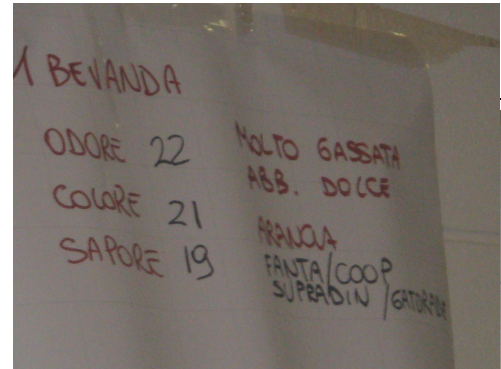 1 BEVANDA
ODORE 22
COLORE 21
SAPORE 19
MOLTO GASSATA
ABB. DOLCE
ARANCIA
FANTA/COOP
SUPRADIN/GATORADE